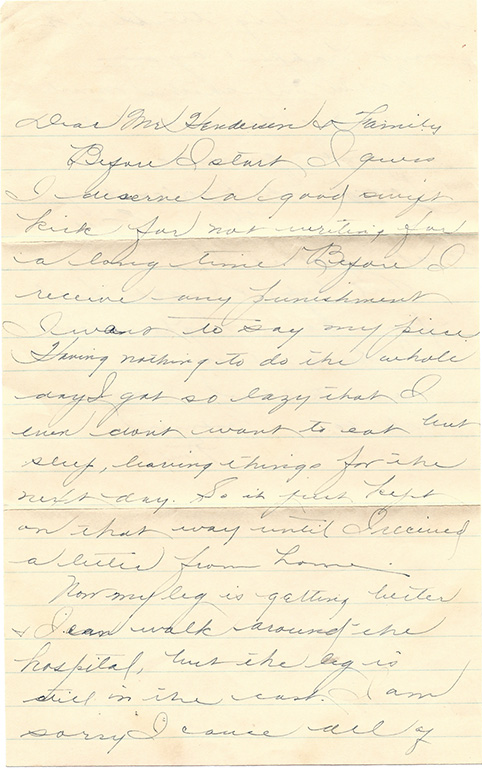 Dear Mr Henderson & Family
Before I start I guess
I deserve a good swift
kick for not writing for
a long time. Before I
receive any punishment
I want to say my piece
Having nothing to do the whole
day I got so lazy that I
even don't want to eat but
sleep, leaving things for the
next day. So it just kept
on that way until I received
a letter from home.
Now my leg is getting better
& I can walk around the
hospital, but the leg is
still in the cast. I am
sorry I cause all of